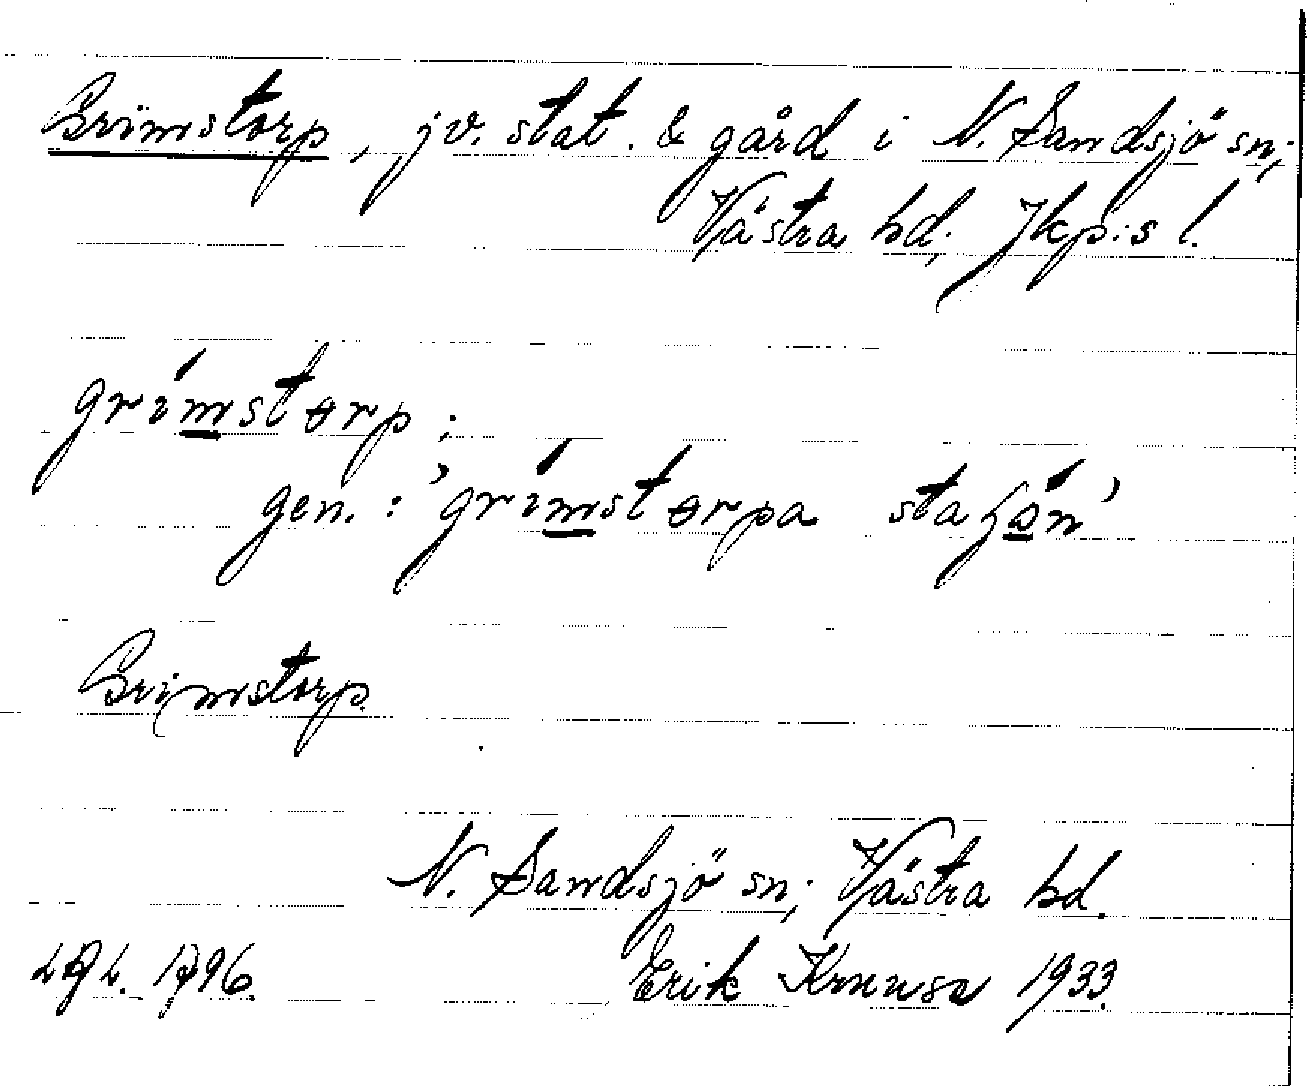 Grimstorp, jv. stat. & gård i N. Sandsjö sn;
Västra hd; Jkp:s l.
grímstɵrp;
gen.: 'grímstɵrpa
Grimstorp.
N. Sandsjö sn; Västra hd.
Erik Kruuse 1933.